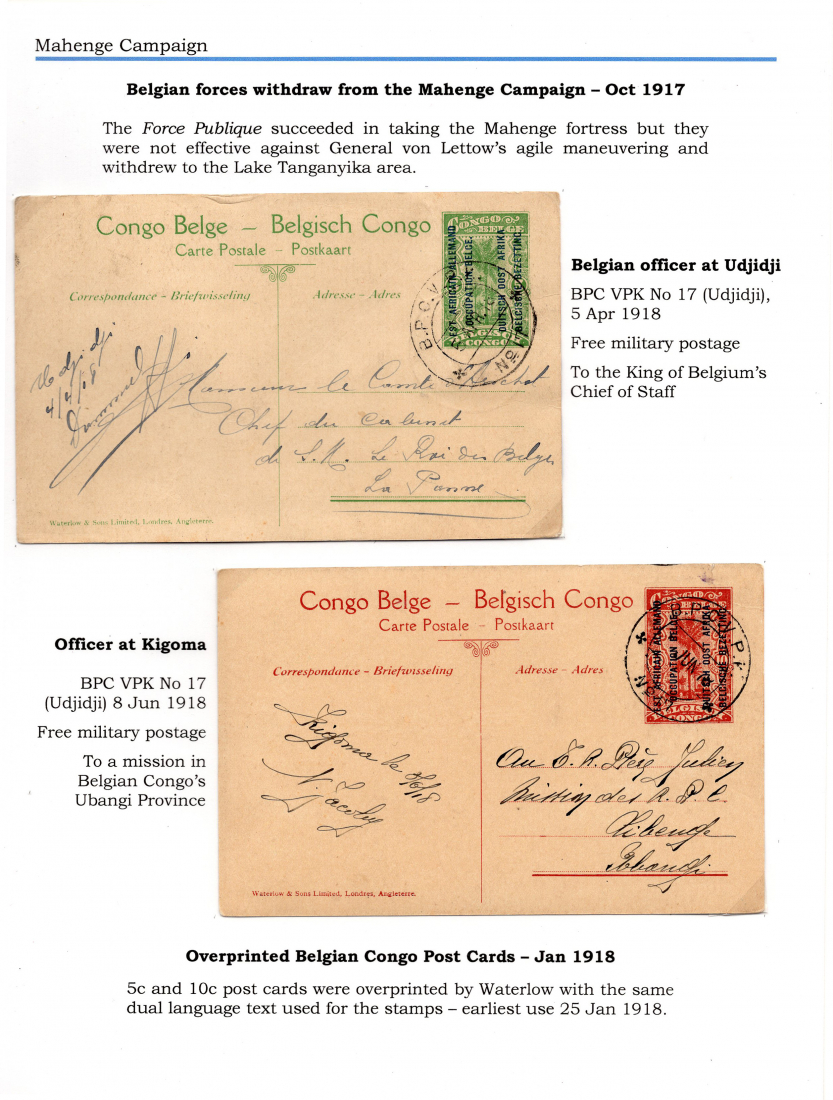 Mahenge Campaign
Belgian forces withdraw from the Mahenge Campaign – Oct 1917
The Force Publique succeeded in taking the Mahenge fortress but they
were not effective against General von Lettow's agile maneuvering and
withdrew to the Lake Tanganyika area.
Congo Belge – Belgisch Congo
Carte Postale – Postkaart
Correspondance – Briefwisseling
Adresse – Adres
CONGO
BELGE
EST AFRICAIN ALLEMAND
OCCUPATION BELGE.
DUITSCH OOST AFRIKA
BELGISCHE BEZETTING
CONGO
B.P.C.V.
No 17
Udjidji
4/4/18
Monsieur le Comte
Chef du cabinet
de S.M. Le Roi des Belges
La Panne
Waterlow & Sons Limited, Londres, Angleterre.
Belgian officer at Udjidji
BPC VPK No 17 (Udjidji),
5 Apr 1918
Free military postage
To the King of Belgium's
Chief of Staff
Officer at Kigoma
BPC VPK No 17
(Udjidji) 8 Jun 1918
Free military postage
To a mission in
Belgian Congo's
Ubangi Province
Congo Belge – Belgisch Congo
Carte Postale – Postkaart
Correspondance – Briefwisseling
Adresse – Adres
CONGO
BELGE
EST AFRICAIN ALLEMAND
OCCUPATION BELGE.
DUITSCH OOST AFRIKA
BELGISCHE BEZETTING
BELGISCH
CONGO
Kigoma le
Au T. R. Père Julien
Mission des R. P. C.
Ubangi
Waterlow & Sons Limited, Londres, Angleterre.
Overprinted Belgian Congo Post Cards – Jan 1918
5c and 10c post cards were overprinted by Waterlow with the same
dual language text used for the stamps – earliest use 25 Jan 1918.